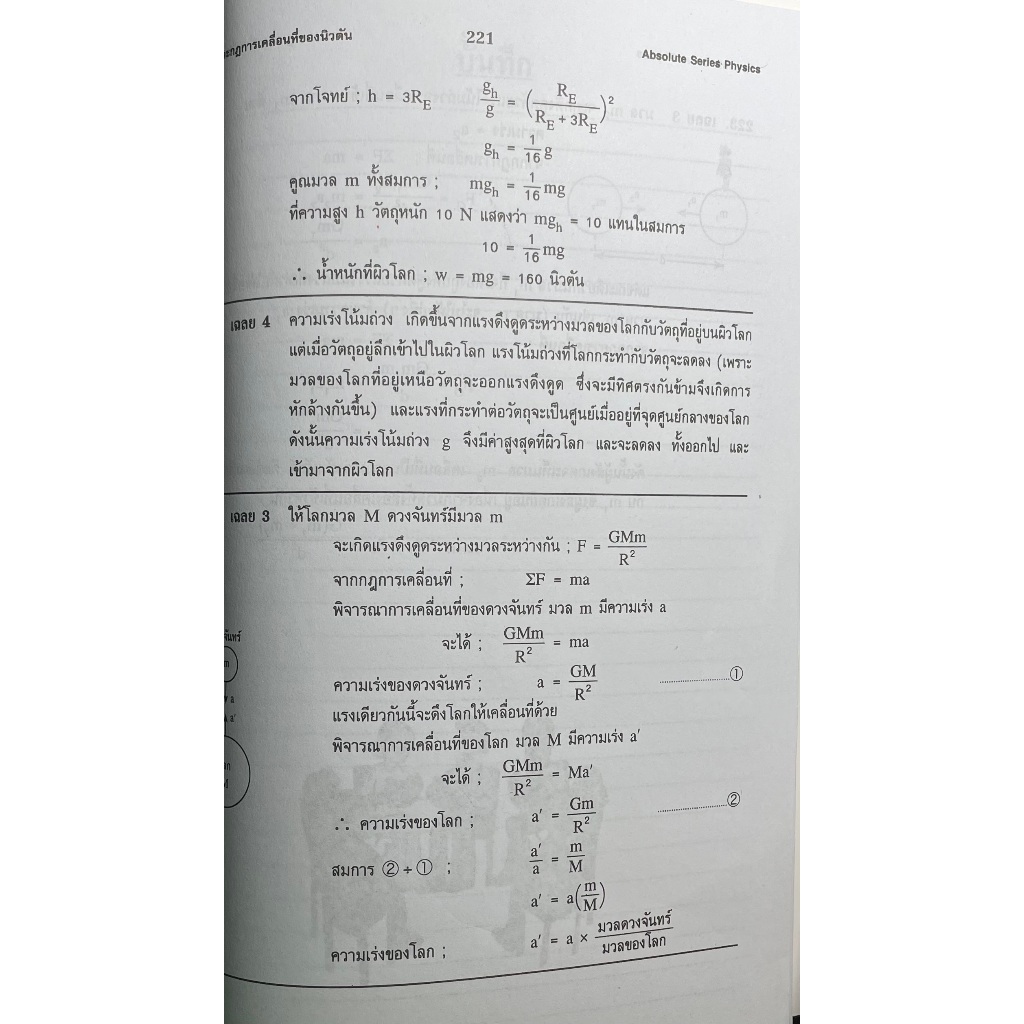 ะกฎการเคลื่อนที่ของนิวตัน
221
Absolute Series Physics
จากโจทย์ ; h = 3R_E   g_h/g = (R_E/(R_E + 3R_E))²
g_h = 1/16 g
คูณมวล m ทั้งสมการ ;   mg_h = 1/16 mg
ที่ความสูง h วัตถุหนัก 10 N แสดงว่า mg_h = 10 แทนในสมการ
10 = 1/16 mg
∴ น้ำหนักที่ผิวโลก ; w = mg = 160 นิวตัน
เฉลย 4 ความเร่งโน้มถ่วง เกิดขึ้นจากแรงดึงดูดระหว่างมวลของโลกกับวัตถุที่อยู่บนผิวโลก
แต่เมื่อวัตถุอยู่ลึกเข้าไปในผิวโลก แรงโน้มถ่วงที่โลกกระทำกับวัตถุจะลดลง (เพราะ
มวลของโลกที่อยู่เหนือวัตถุจะออกแรงดึงดูด ซึ่งจะมีทิศตรงกันข้ามจึงเกิดการ
หักล้างกันขึ้น) และแรงที่กระทำต่อวัตถุจะเป็นศูนย์เมื่ออยู่ที่จุดศูนย์กลางของโลก
ดังนั้นความเร่งโน้มถ่วง g จึงมีค่าสูงสุดที่ผิวโลก และจะลดลง ทั้งออกไป และ
เข้ามาจากผิวโลก
เฉลย 3 ให้โลกมวล M ดวงจันทร์มีมวล m
จะเกิดแรงดึงดูดระหว่างมวลระหว่างกัน ; F = GMm/R²
จากกฎการเคลื่อนที่ ;   ΣF = ma
พิจารณาการเคลื่อนที่ของดวงจันทร์ มวล m มีความเร่ง a
จะได้ ;   GMm/R² = ma
ความเร่งของดวงจันทร์ ;   a = GM/R² ..............................①
แรงเดียวกันนี้จะดึงโลกให้เคลื่อนที่ด้วย
พิจารณาการเคลื่อนที่ของโลก มวล M มีความเร่ง a′
จะได้ ;   GMm/R² = Ma′
∴ ความเร่งของโลก ;   a′ = Gm/R² ..............................②
สมการ ② ÷ ① ;   a′/a = m/M
a′ = a(m/M)
ความเร่งของโลก ;   a′ = a × มวลดวงจันทร์/มวลของโลก
m
a
a′